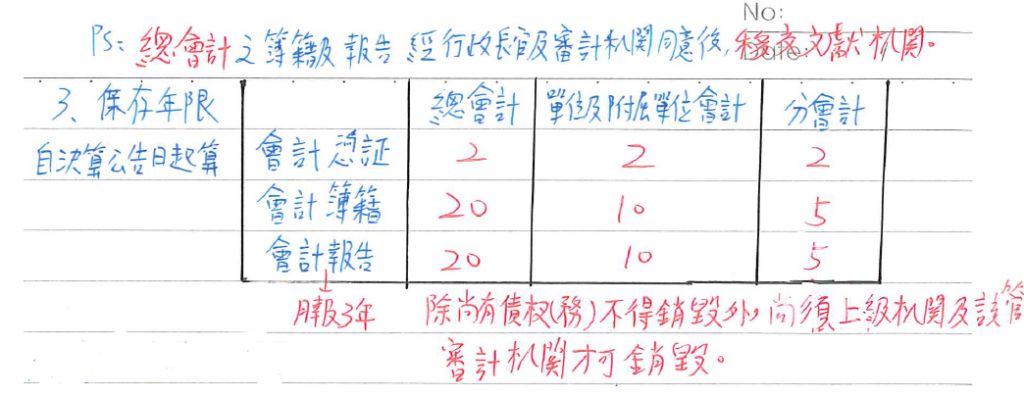 No:
PS: 總會計之簿籍及報告 經行政長官及審計机関同意後, 移交文獻机関。
3、保存年限 總會計 單位及附屬單位會計 分會計
自決算公告日起算 會計憑証 2 2 2
會計簿籍 20 10 5
會計報告 20 10 5
↓
月報3年 除尚有債权(務)不得銷毀外, 尚須上級机関及該管
審計机関才可銷毀。